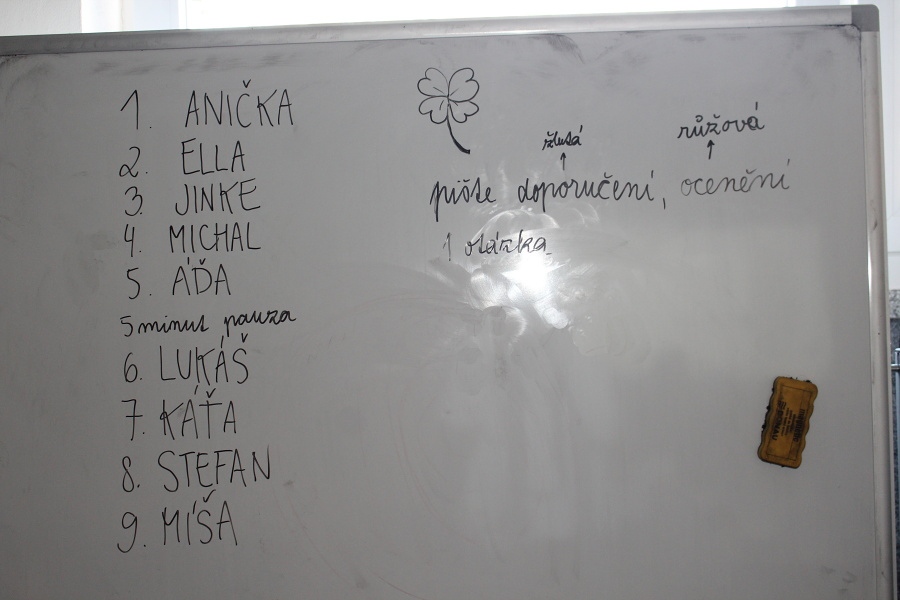 1. ANIČKA
2. ELLA
3. JINKE
4. MICHAL
5. ÁĎA
5 minut pauza
6. LUKÁŠ
7. KÁŤA
8. STEFAN
9. MÍŠA
žlutá růžová
pište doporučení, ocenění
1 otázka